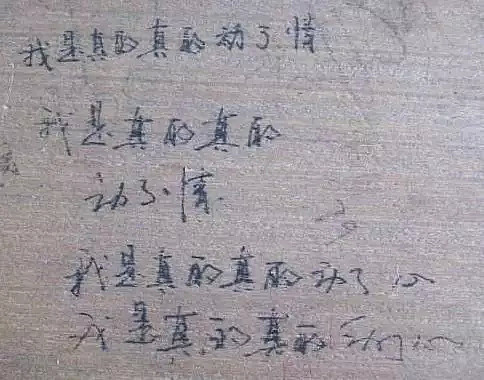 我是真的真的动了情
我是真的真的
动了情
我是真的真的动了心
我是真的真的动了心